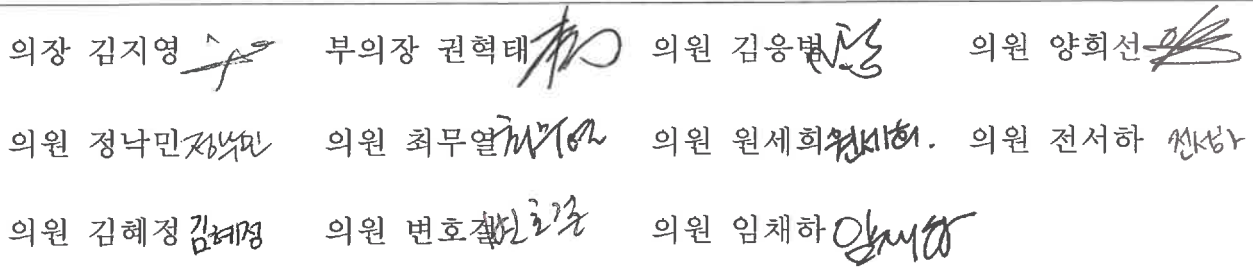 의장 김지영 부의장 권혁태 의원 김응범 의원 양희선
의원 정낙민 정낙민 의원 최무열 최무열 의원 원세희 원세희. 의원 전서하 전서하
의원 김혜정 김혜정 의원 변호길 의원 임채하 임채하